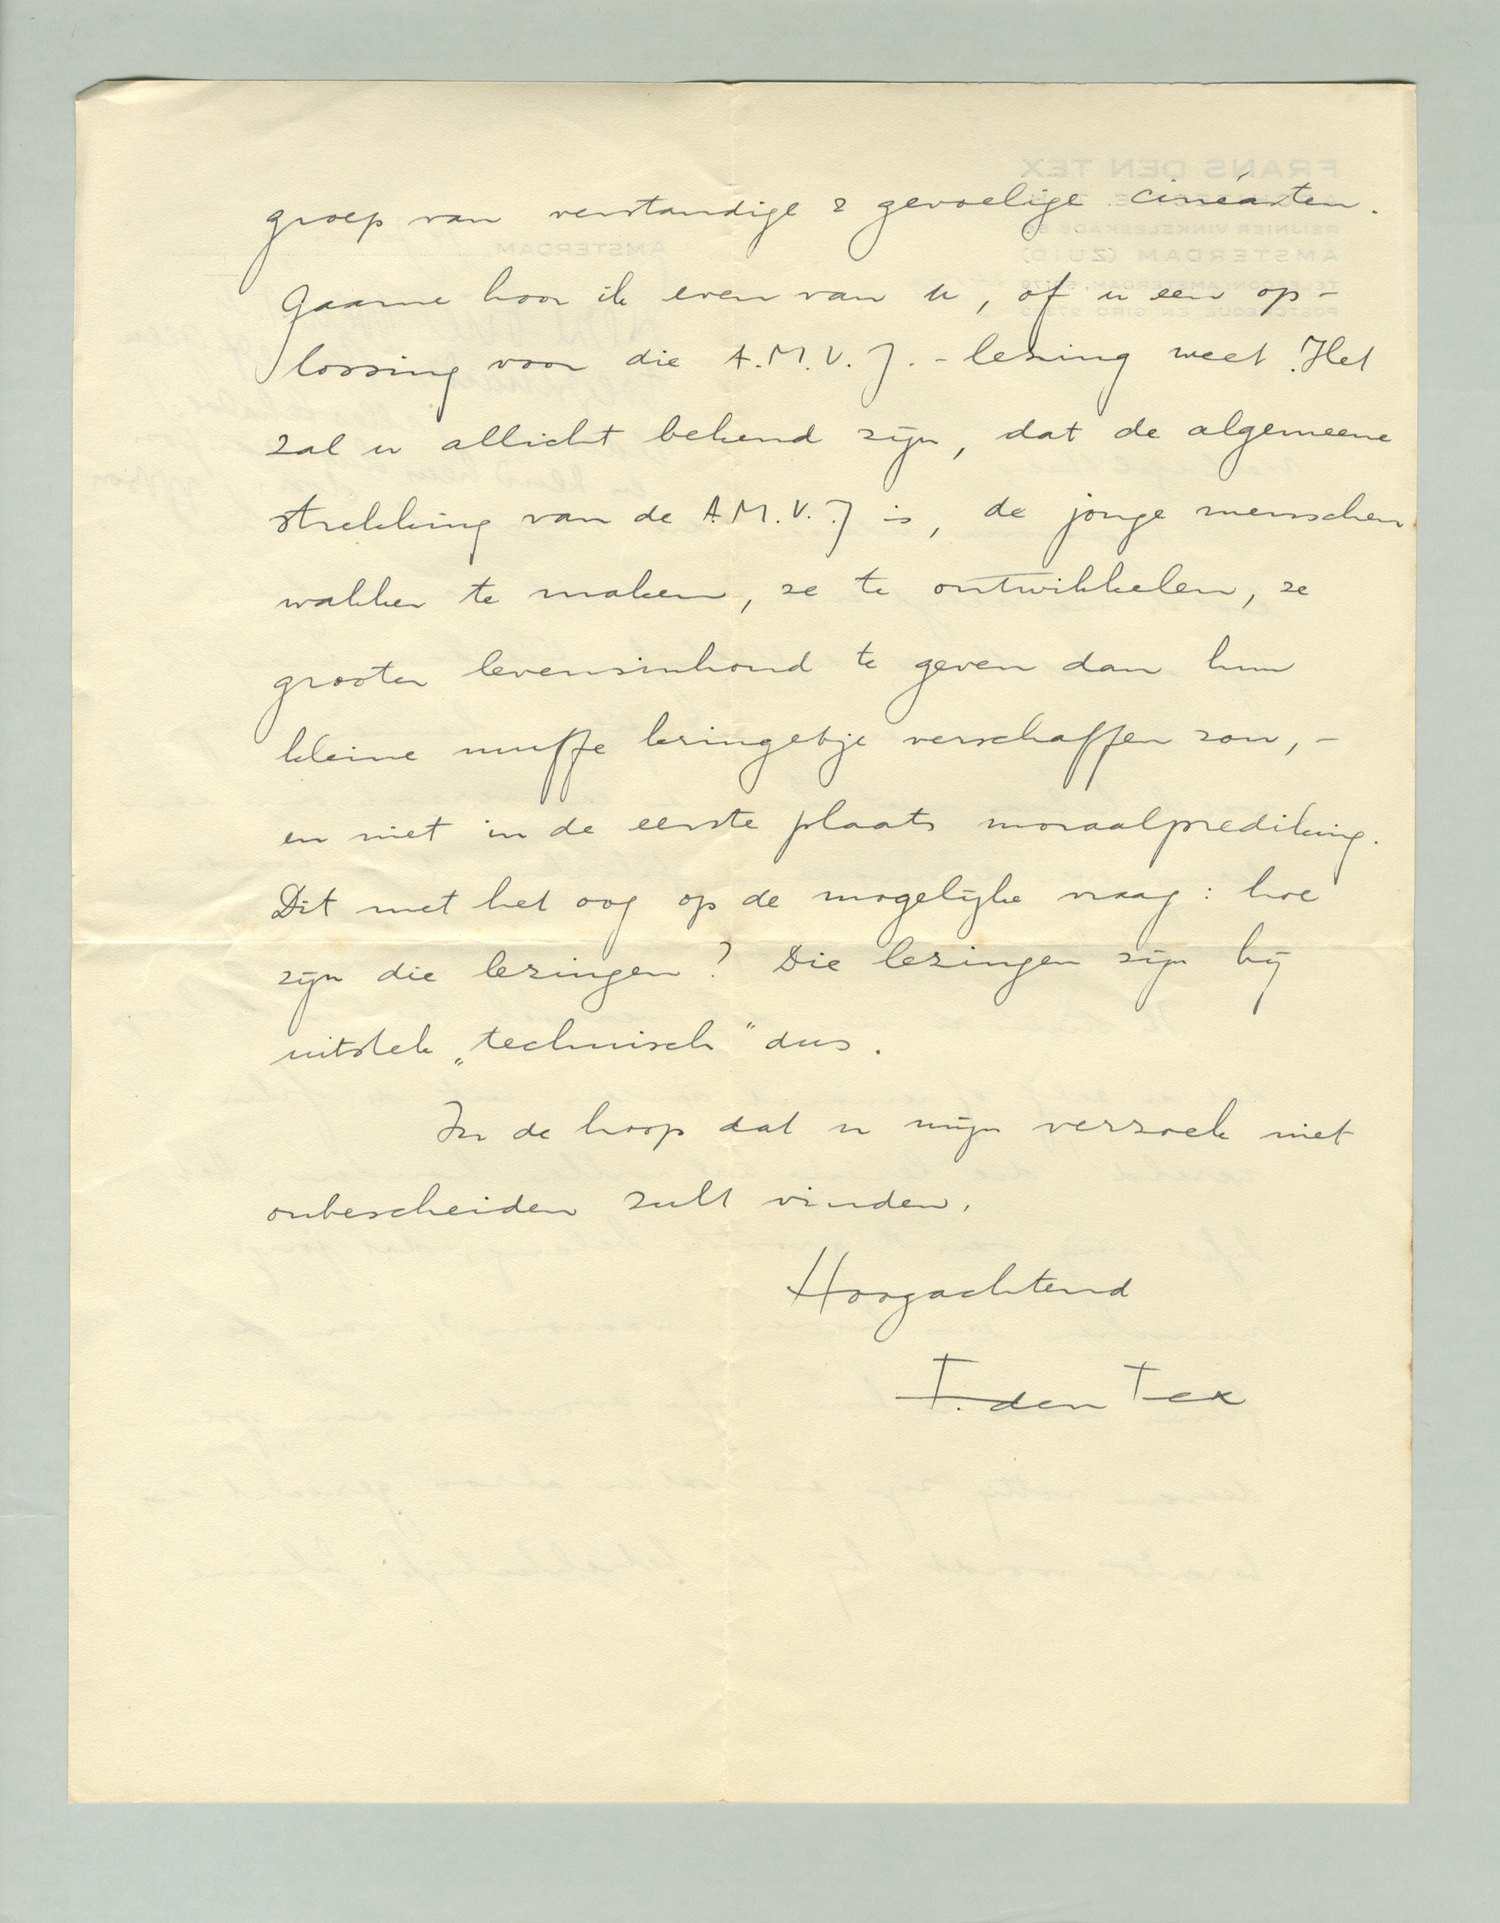 groep van verstandige & gevoelige cinéasten.
Gaarne hoor ik even van u, of u een op-
lossing voor die A.M.V.J.-lezing weet. Het
zal u allicht bekend zijn, dat de algemeene
strekking van de A.M.V.J is, de jonge menschen
wakker te maken, ze te ontwikkelen, ze
grooter levensinhoud te geven dan hun
kleine muffe kringetje verschaffen zou, -
en niet in de eerste plaats moraalprediking.
Dit met het oog op de mogelijke vraag: hoe
zijn die lezingen? Die lezingen zijn bij
uitstek „technisch" dus.
In de hoop dat u mijn verzoek niet
onbescheiden zult vinden,
Hoogachtend
F. den Tex
FRANS DEN TEX
REIJNIER VINKELESKADE
AMSTERDAM (ZUID)
AMSTERDAM,